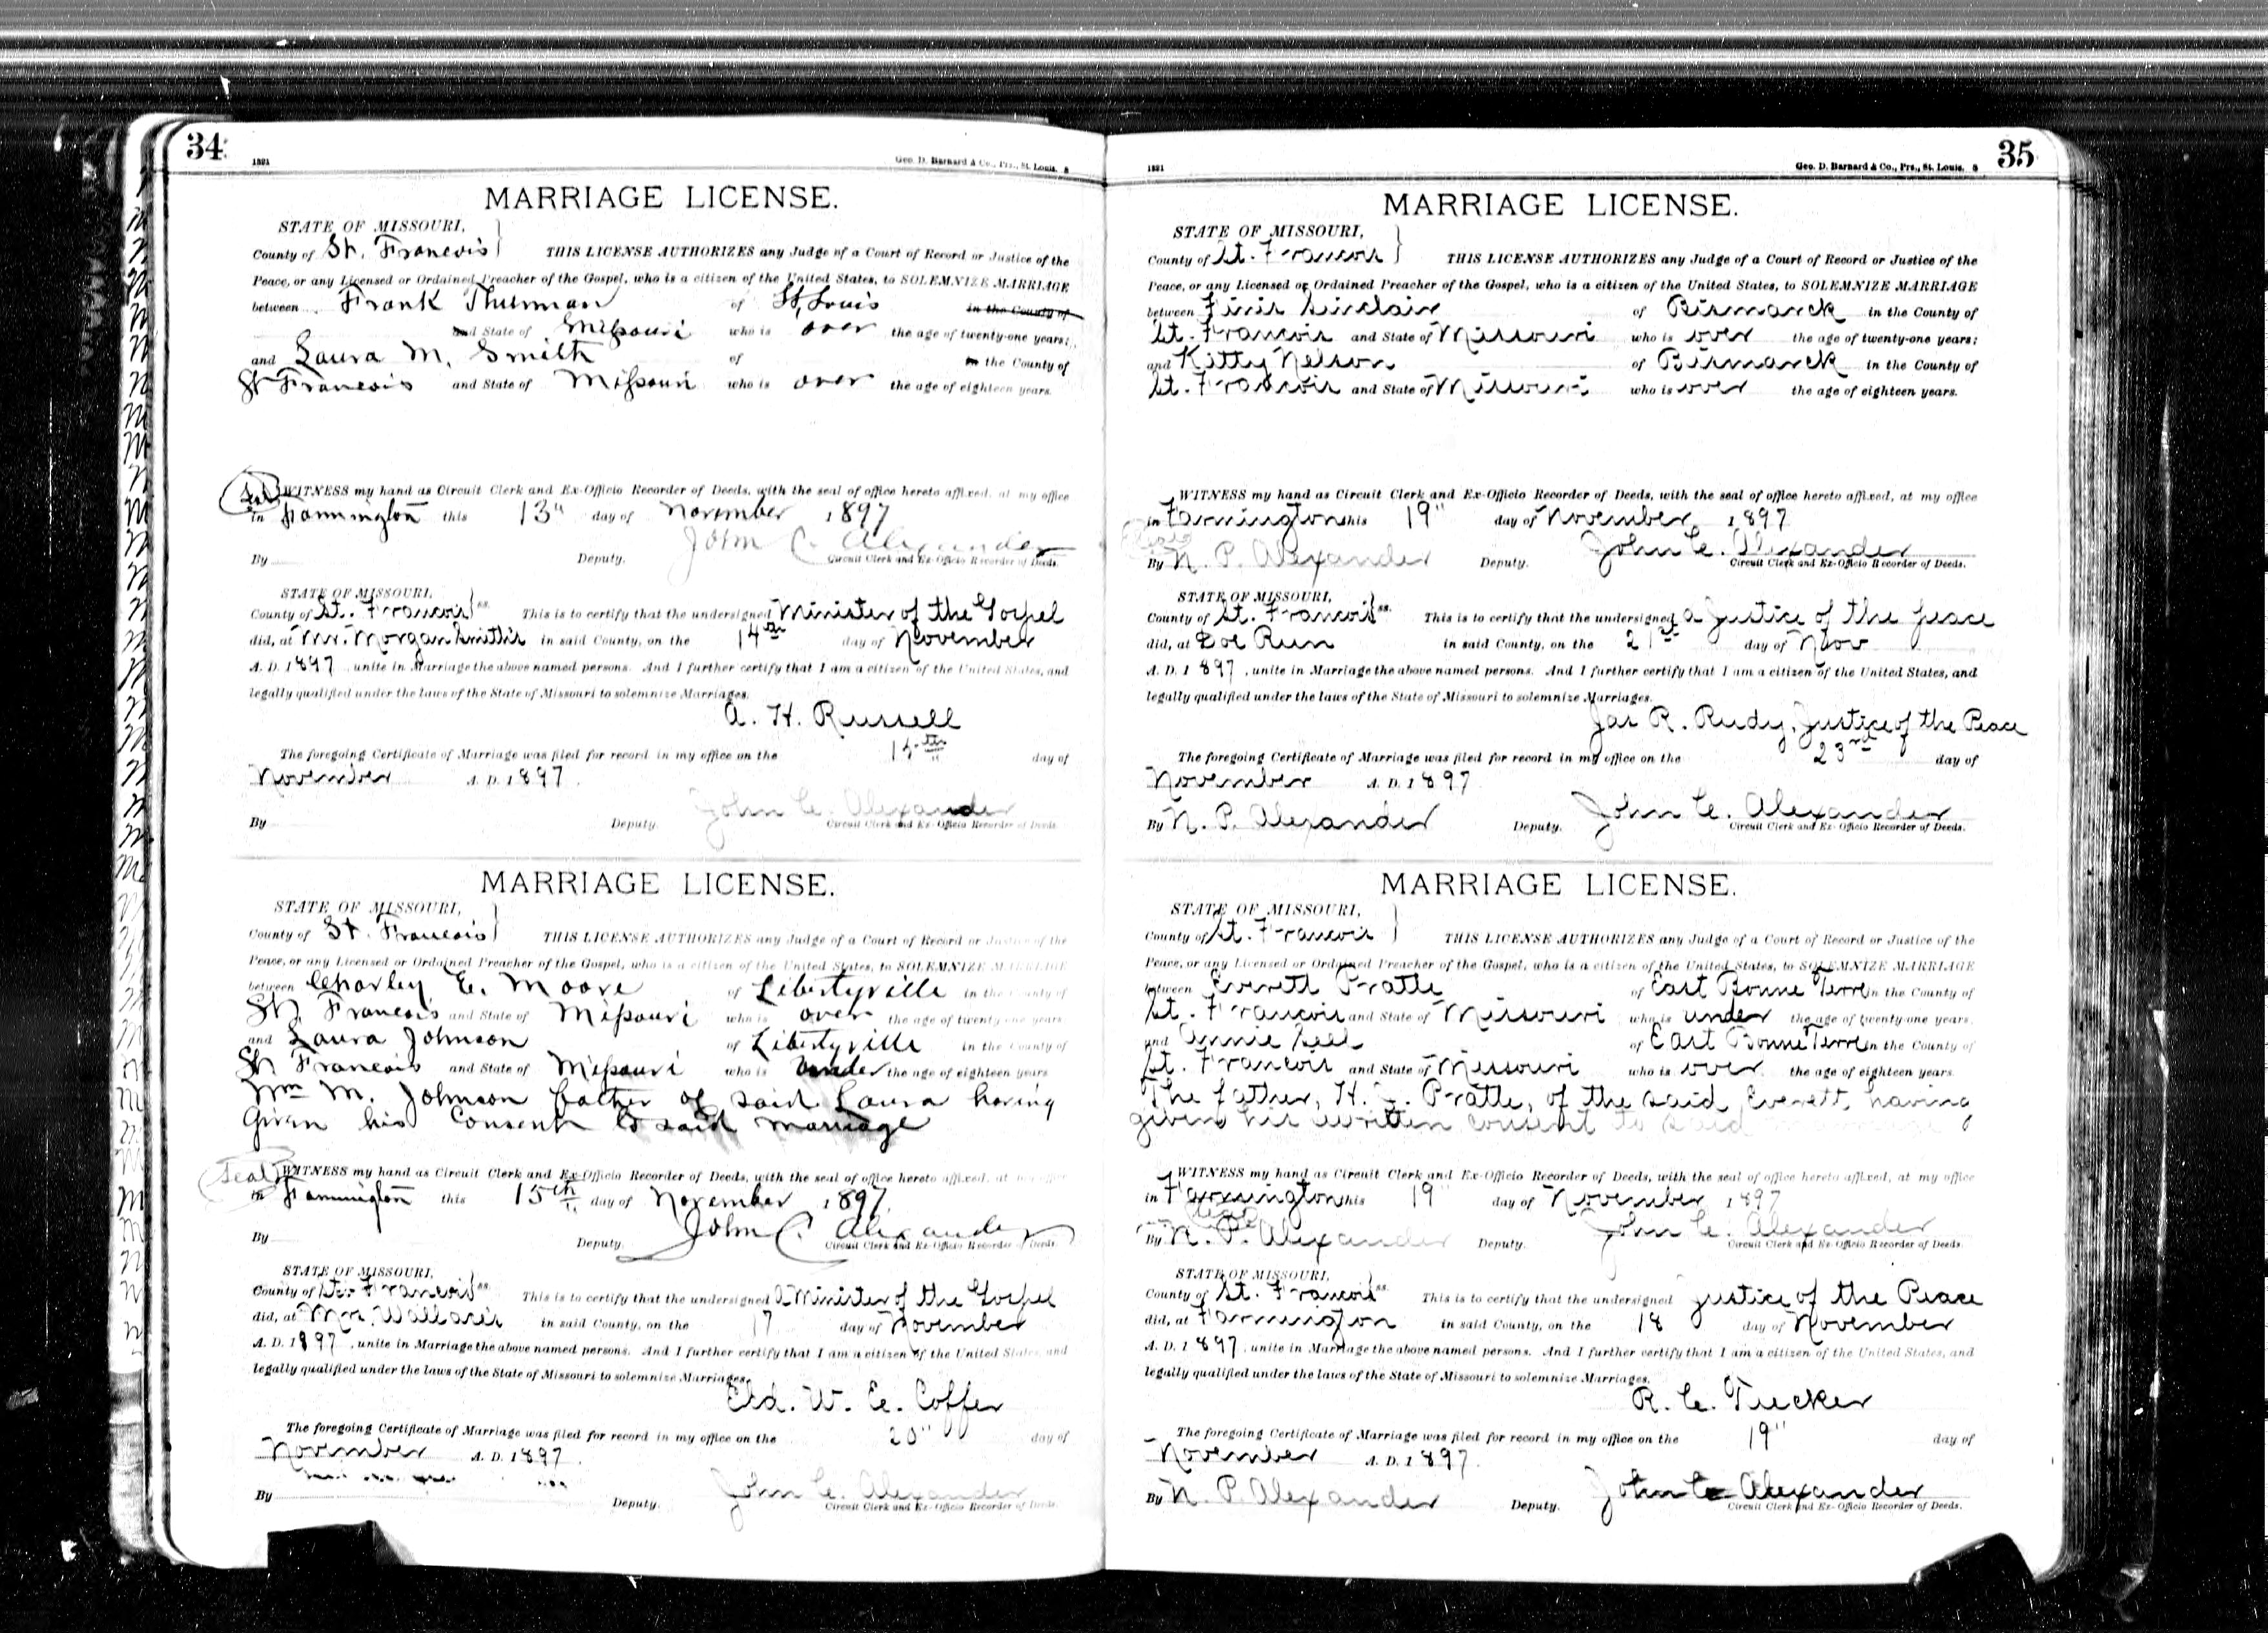 34
1891
Geo. D. Barnard & Co., Prs., St. Louis. 8
MARRIAGE LICENSE.
STATE OF MISSOURI,
County of St. Francois } THIS LICENSE AUTHORIZES any Judge of a Court of Record or Justice of the
Peace, or any Licensed or Ordained Preacher of the Gospel, who is a citizen of the United States, to SOLEMNIZE MARRIAGE
between Frank Thurman of St. Louis in the County of
and State of Missouri who is over the age of twenty-one years;
and Laura M. Smith of in the County of
St Francois and State of Missouri who is over the age of eighteen years.
Seal WITNESS my hand as Circuit Clerk and Ex-Officio Recorder of Deeds, with the seal of office hereto affixed, at my office
in Farmington this 13" day of November 1897
John C. Alexander
By Deputy. Circuit Clerk and Ex-Officio Recorder of Deeds.
STATE OF MISSOURI,
County of St. Francois } ss. This is to certify that the undersigned Minister of the Gospel
did, at Mr. Morgan Smith's in said County, on the 14th day of November
A. D. 1897, unite in Marriage the above named persons. And I further certify that I am a citizen of the United States, and
legally qualified under the laws of the State of Missouri to solemnize Marriages.
A. H. Russell
The foregoing Certificate of Marriage was filed for record in my office on the 15th day of
November A. D. 1897.
John C. Alexander
By Deputy. Circuit Clerk and Ex-Officio Recorder of Deeds.
MARRIAGE LICENSE.
STATE OF MISSOURI,
County of St. Francois } THIS LICENSE AUTHORIZES any Judge of a Court of Record or Justice of the
Peace, or any Licensed or Ordained Preacher of the Gospel, who is a citizen of the United States, to SOLEMNIZE MARRIAGE
between Charley E. Moore of Libertyville in the County of
St. Francois and State of Missouri who is over the age of twenty-one years
and Laura Johnson of Libertyville in the County of
St Francois and State of Missouri who is under the age of eighteen years
Wm M. Johnson father of said Laura having
given his consent to said marriage
Seal WITNESS my hand as Circuit Clerk and Ex-Officio Recorder of Deeds, with the seal of office hereto affixed, at my office
in Farmington this 15th day of November 1897
John C. Alexander
By Deputy. Circuit Clerk and Ex-Officio Recorder of Deeds.
STATE OF MISSOURI,
County of St. Francois } ss. This is to certify that the undersigned a Minister of the Gospel
did, at Mr. Wallace's in said County, on the 17 day of November
A. D. 1897, unite in Marriage the above named persons. And I further certify that I am a citizen of the United States, and
legally qualified under the laws of the State of Missouri to solemnize Marriages.
Eld. W. E. Coffer
The foregoing Certificate of Marriage was filed for record in my office on the 20" day of
November A. D. 1897.
John C. Alexander
By Deputy. Circuit Clerk and Ex-Officio Recorder of Deeds.
35
1891
Geo. D. Barnard & Co., Prs., St. Louis. 8
MARRIAGE LICENSE.
STATE OF MISSOURI,
County of St. Francois } THIS LICENSE AUTHORIZES any Judge of a Court of Record or Justice of the
Peace, or any Licensed or Ordained Preacher of the Gospel, who is a citizen of the United States, to SOLEMNIZE MARRIAGE
between Finis Sinclair of Bismarck in the County of
St. Francois and State of Missouri who is over the age of twenty-one years;
and Kitty Nelson of Bismarck in the County of
St. Francois and State of Missouri who is over the age of eighteen years.
WITNESS my hand as Circuit Clerk and Ex-Officio Recorder of Deeds, with the seal of office hereto affixed, at my office
in Farmington this 19" day of November, 1897
John C. Alexander
By N. P. Alexander Deputy. Circuit Clerk and Ex-Officio Recorder of Deeds.
STATE OF MISSOURI,
County of St. Francois } ss. This is to certify that the undersigned a Justice of the peace
did, at Doe Run in said County, on the 21st day of Nov
A. D. 1897, unite in Marriage the above named persons. And I further certify that I am a citizen of the United States, and
legally qualified under the laws of the State of Missouri to solemnize Marriages.
Jas R. Rudy, Justice of the Peace
The foregoing Certificate of Marriage was filed for record in my office on the 23rd day of
November A. D. 1897
John C. Alexander
By N. P. Alexander Deputy. Circuit Clerk and Ex-Officio Recorder of Deeds.
MARRIAGE LICENSE.
STATE OF MISSOURI,
County of St. Francois } THIS LICENSE AUTHORIZES any Judge of a Court of Record or Justice of the
Peace, or any Licensed or Ordained Preacher of the Gospel, who is a citizen of the United States, to SOLEMNIZE MARRIAGE
between Everett Pratte of East Bonne Terre in the County of
St. Francois and State of Missouri who is under the age of twenty-one years,
and Annie of East Bonne Terre in the County of
St. Francois and State of Missouri who is over the age of eighteen years.
The father, H. Pratte, of the said Everett, having
given his written consent to said
WITNESS my hand as Circuit Clerk and Ex-Officio Recorder of Deeds, with the seal of office hereto affixed, at my office
in Farmington this 19" day of November 1897
Seal John C. Alexander
By N. P. Alexander Deputy. Circuit Clerk and Ex-Officio Recorder of Deeds.
STATE OF MISSOURI,
County of St. Francois } ss. This is to certify that the undersigned Justice of the Peace
did, at Farmington in said County, on the 18 day of November
A. D. 1897, unite in Marriage the above named persons. And I further certify that I am a citizen of the United States, and
legally qualified under the laws of the State of Missouri to solemnize Marriages.
R. C. Tucker
The foregoing Certificate of Marriage was filed for record in my office on the 19" day of
November A. D. 1897.
John C Alexander
By N. P. Alexander Deputy. Circuit Clerk and Ex-Officio Recorder of Deeds.